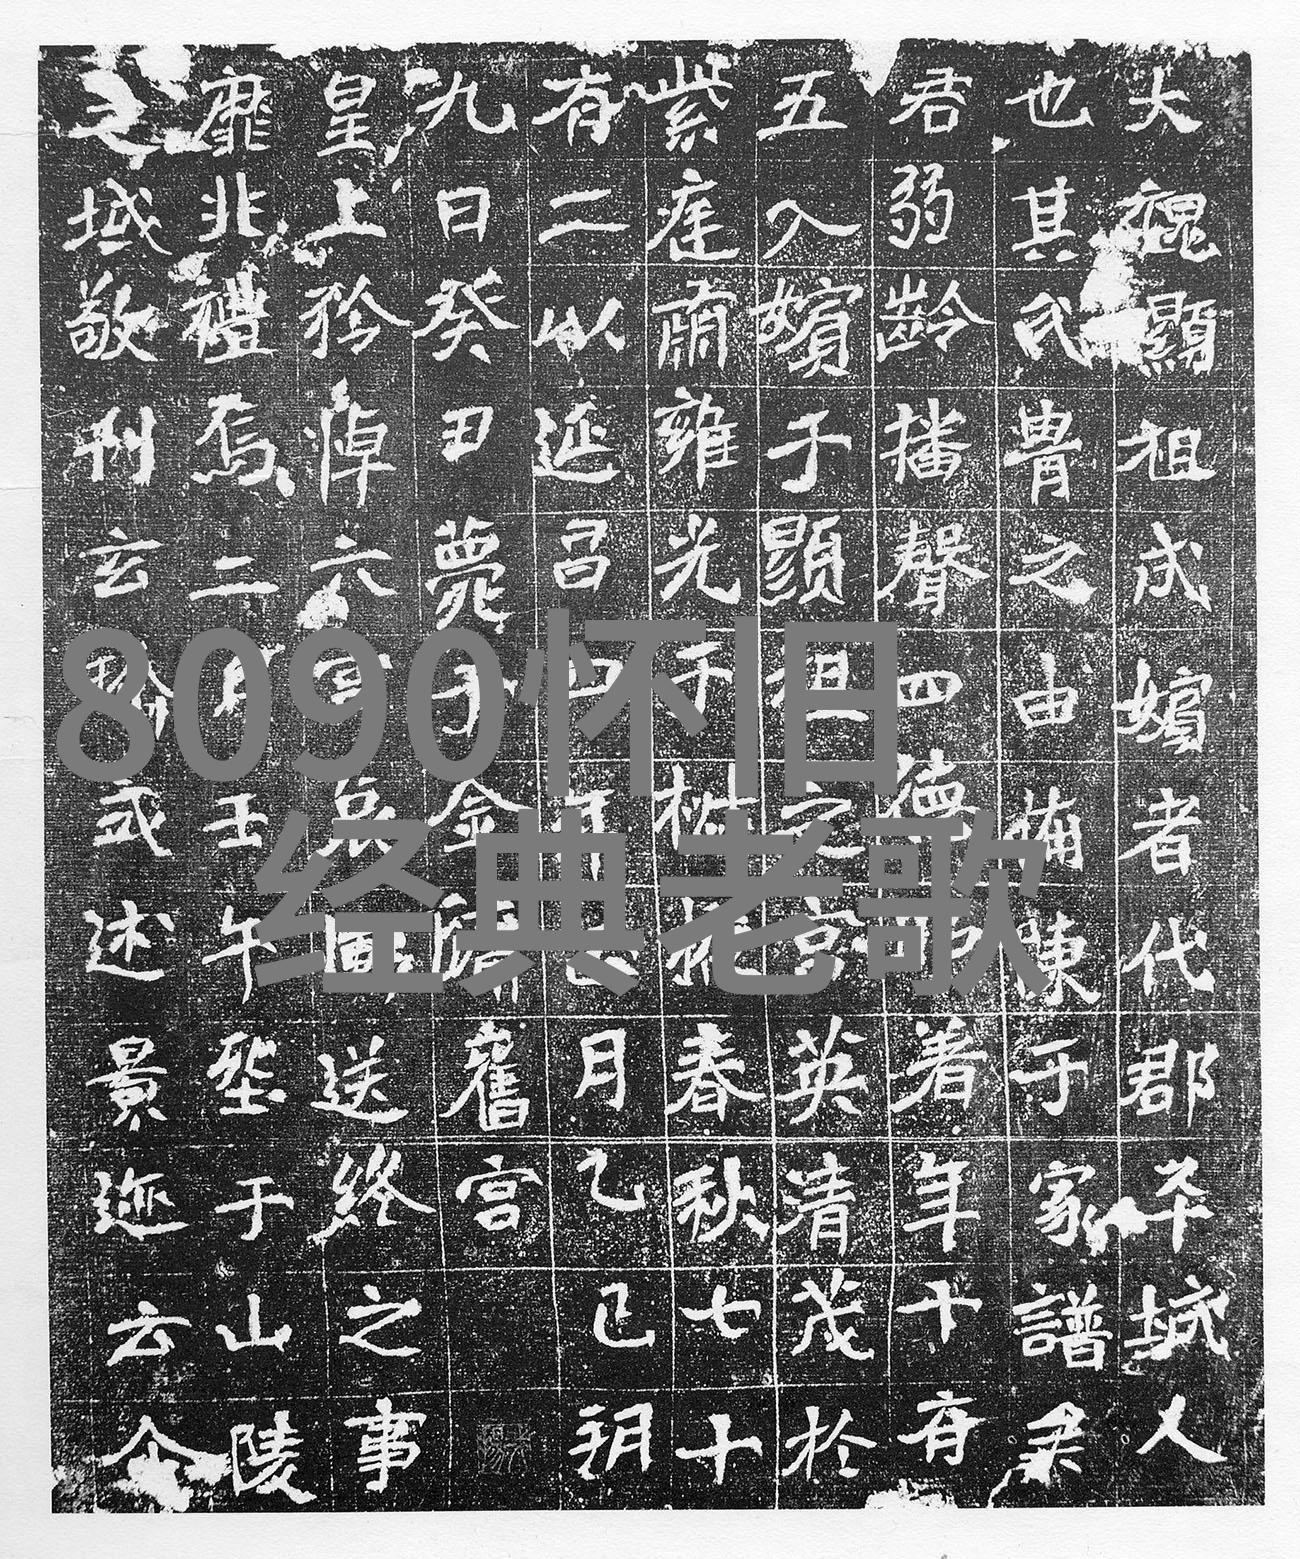 大魏顯祖成嬪者代郡平城人
也其氏胄之由備陳于家譜
君弱齡播聲四德著年十有
五入嬪于顯祖之宮英清茂於
紫庭肅雍光于樹春秋七十
有二以延昌四年正月乙巳朔
九日癸丑薨于金墉舊宮
皇上矜悼六宮哀送終之事
靡非禮焉二月壬午塟于山陵
之域敬刊玄瑜式述景迹云
8090怀旧
经典老歌